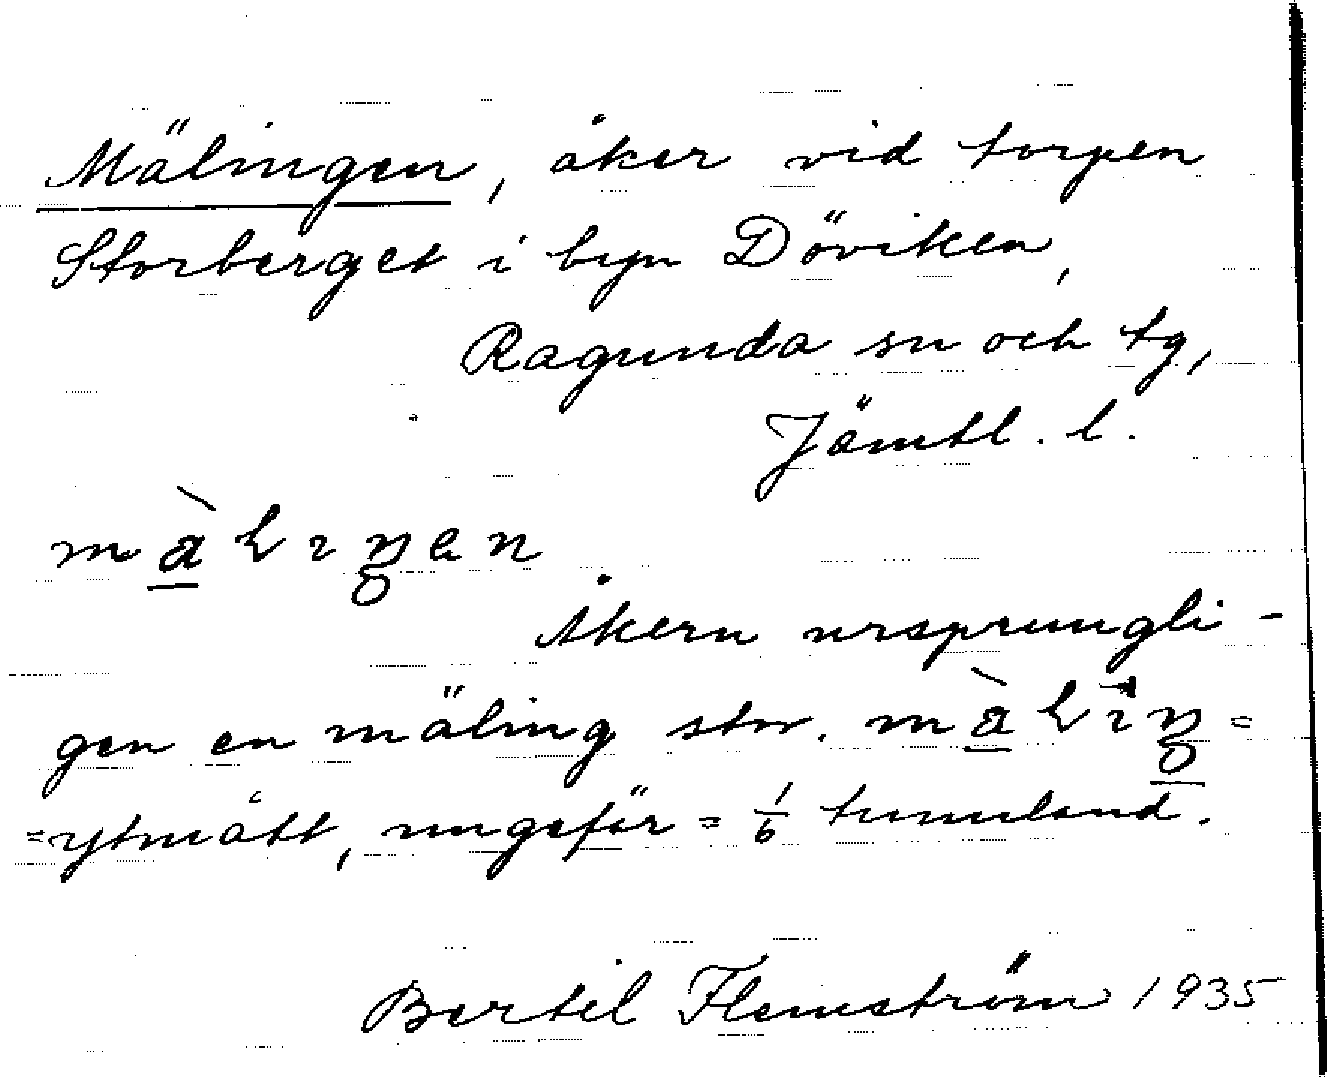 Mälingen, åker vid torpen
Storberget i byn Döviken,
Ragunda sn och tg,
Jämtl. l.
Åkern ursprungli-
gen en mäling stor. =
=ytmått, ungefär = 1/6 tunnland.
Bertil Flemström 1935